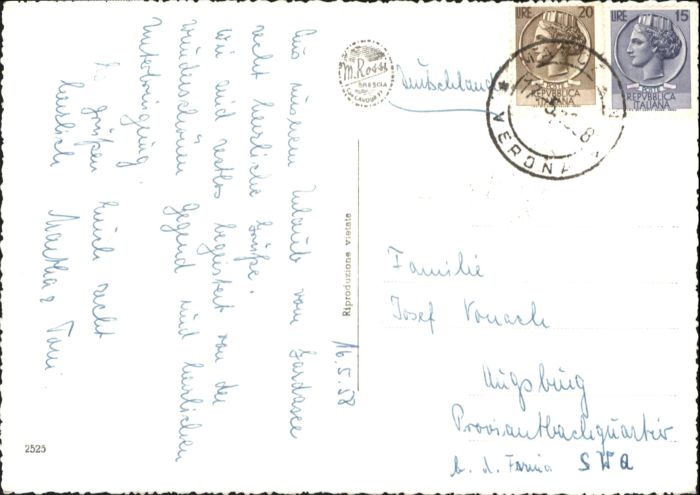 16.5.58
Aus unserem Urlaub vom Gardasee
recht herzliche Grüße.
Wir sind restlos begeistert von der
wunderschönen Gegend und herrlichen
Unterbringung.
Es grüßen Euch recht
herzlich Martha & Toni.
Riproduzione vietata
2525
M. Rossi
BRESCIA
Deutschland
LIRE 20
POSTE
REPVBBLICA
ITALIANA
LIRE 15
POSTE
REPVBBLICA
ITALIANA
VERONA
Familie
Josef Vonach
Augsburg
Proviantbachquartier
b. d. Firma SWA